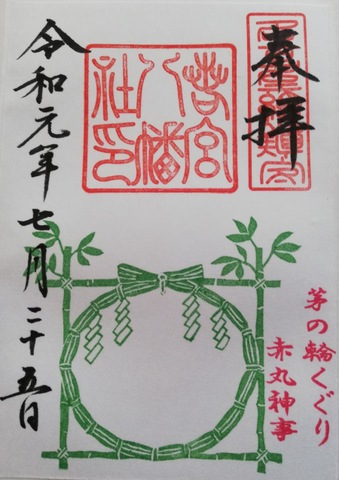 奉拝
若宮
八幡
社印
茅の輪くぐり
赤丸神事
令和元年七月二十五日